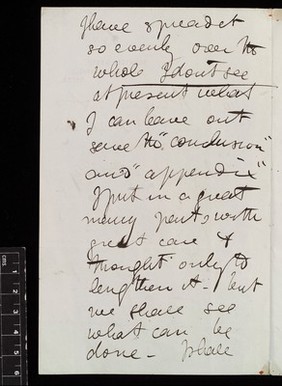 I have spread it
so evenly over the
whole I don't see
at present what
I can leave out
save the "conclusion"
and "appendix"
I put in a great
many parts with
great care &
thought only to
lengthen it - but
we shall see
what can be
done - I shall